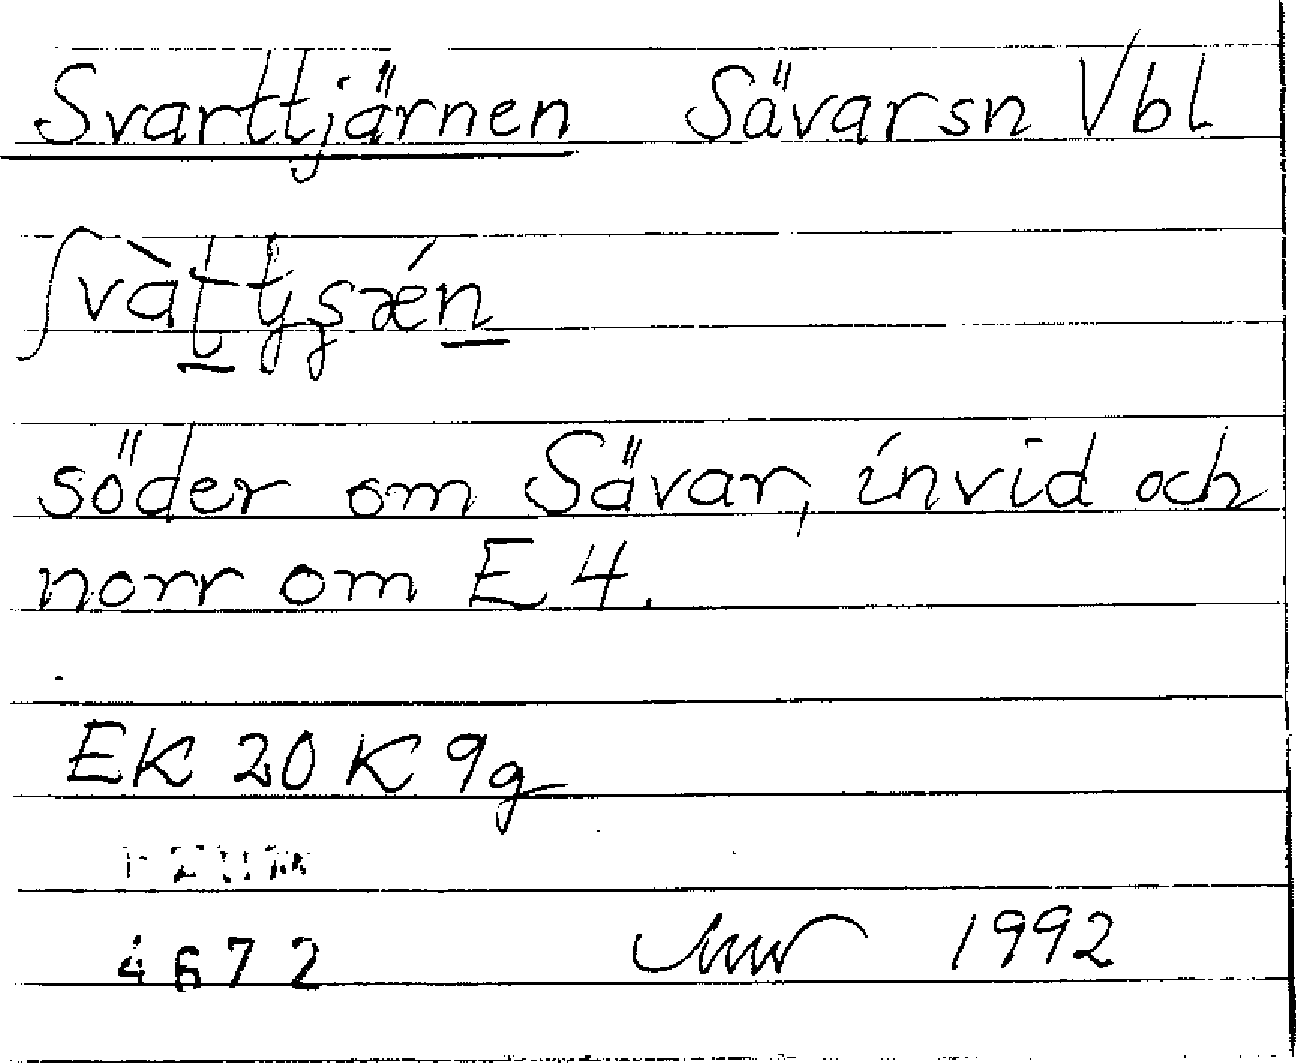 Svarttjärnen Sävarsn Vbl
söder om Sävar, invid och
norr om E 4.
EK 20 K 9g
4672 1992